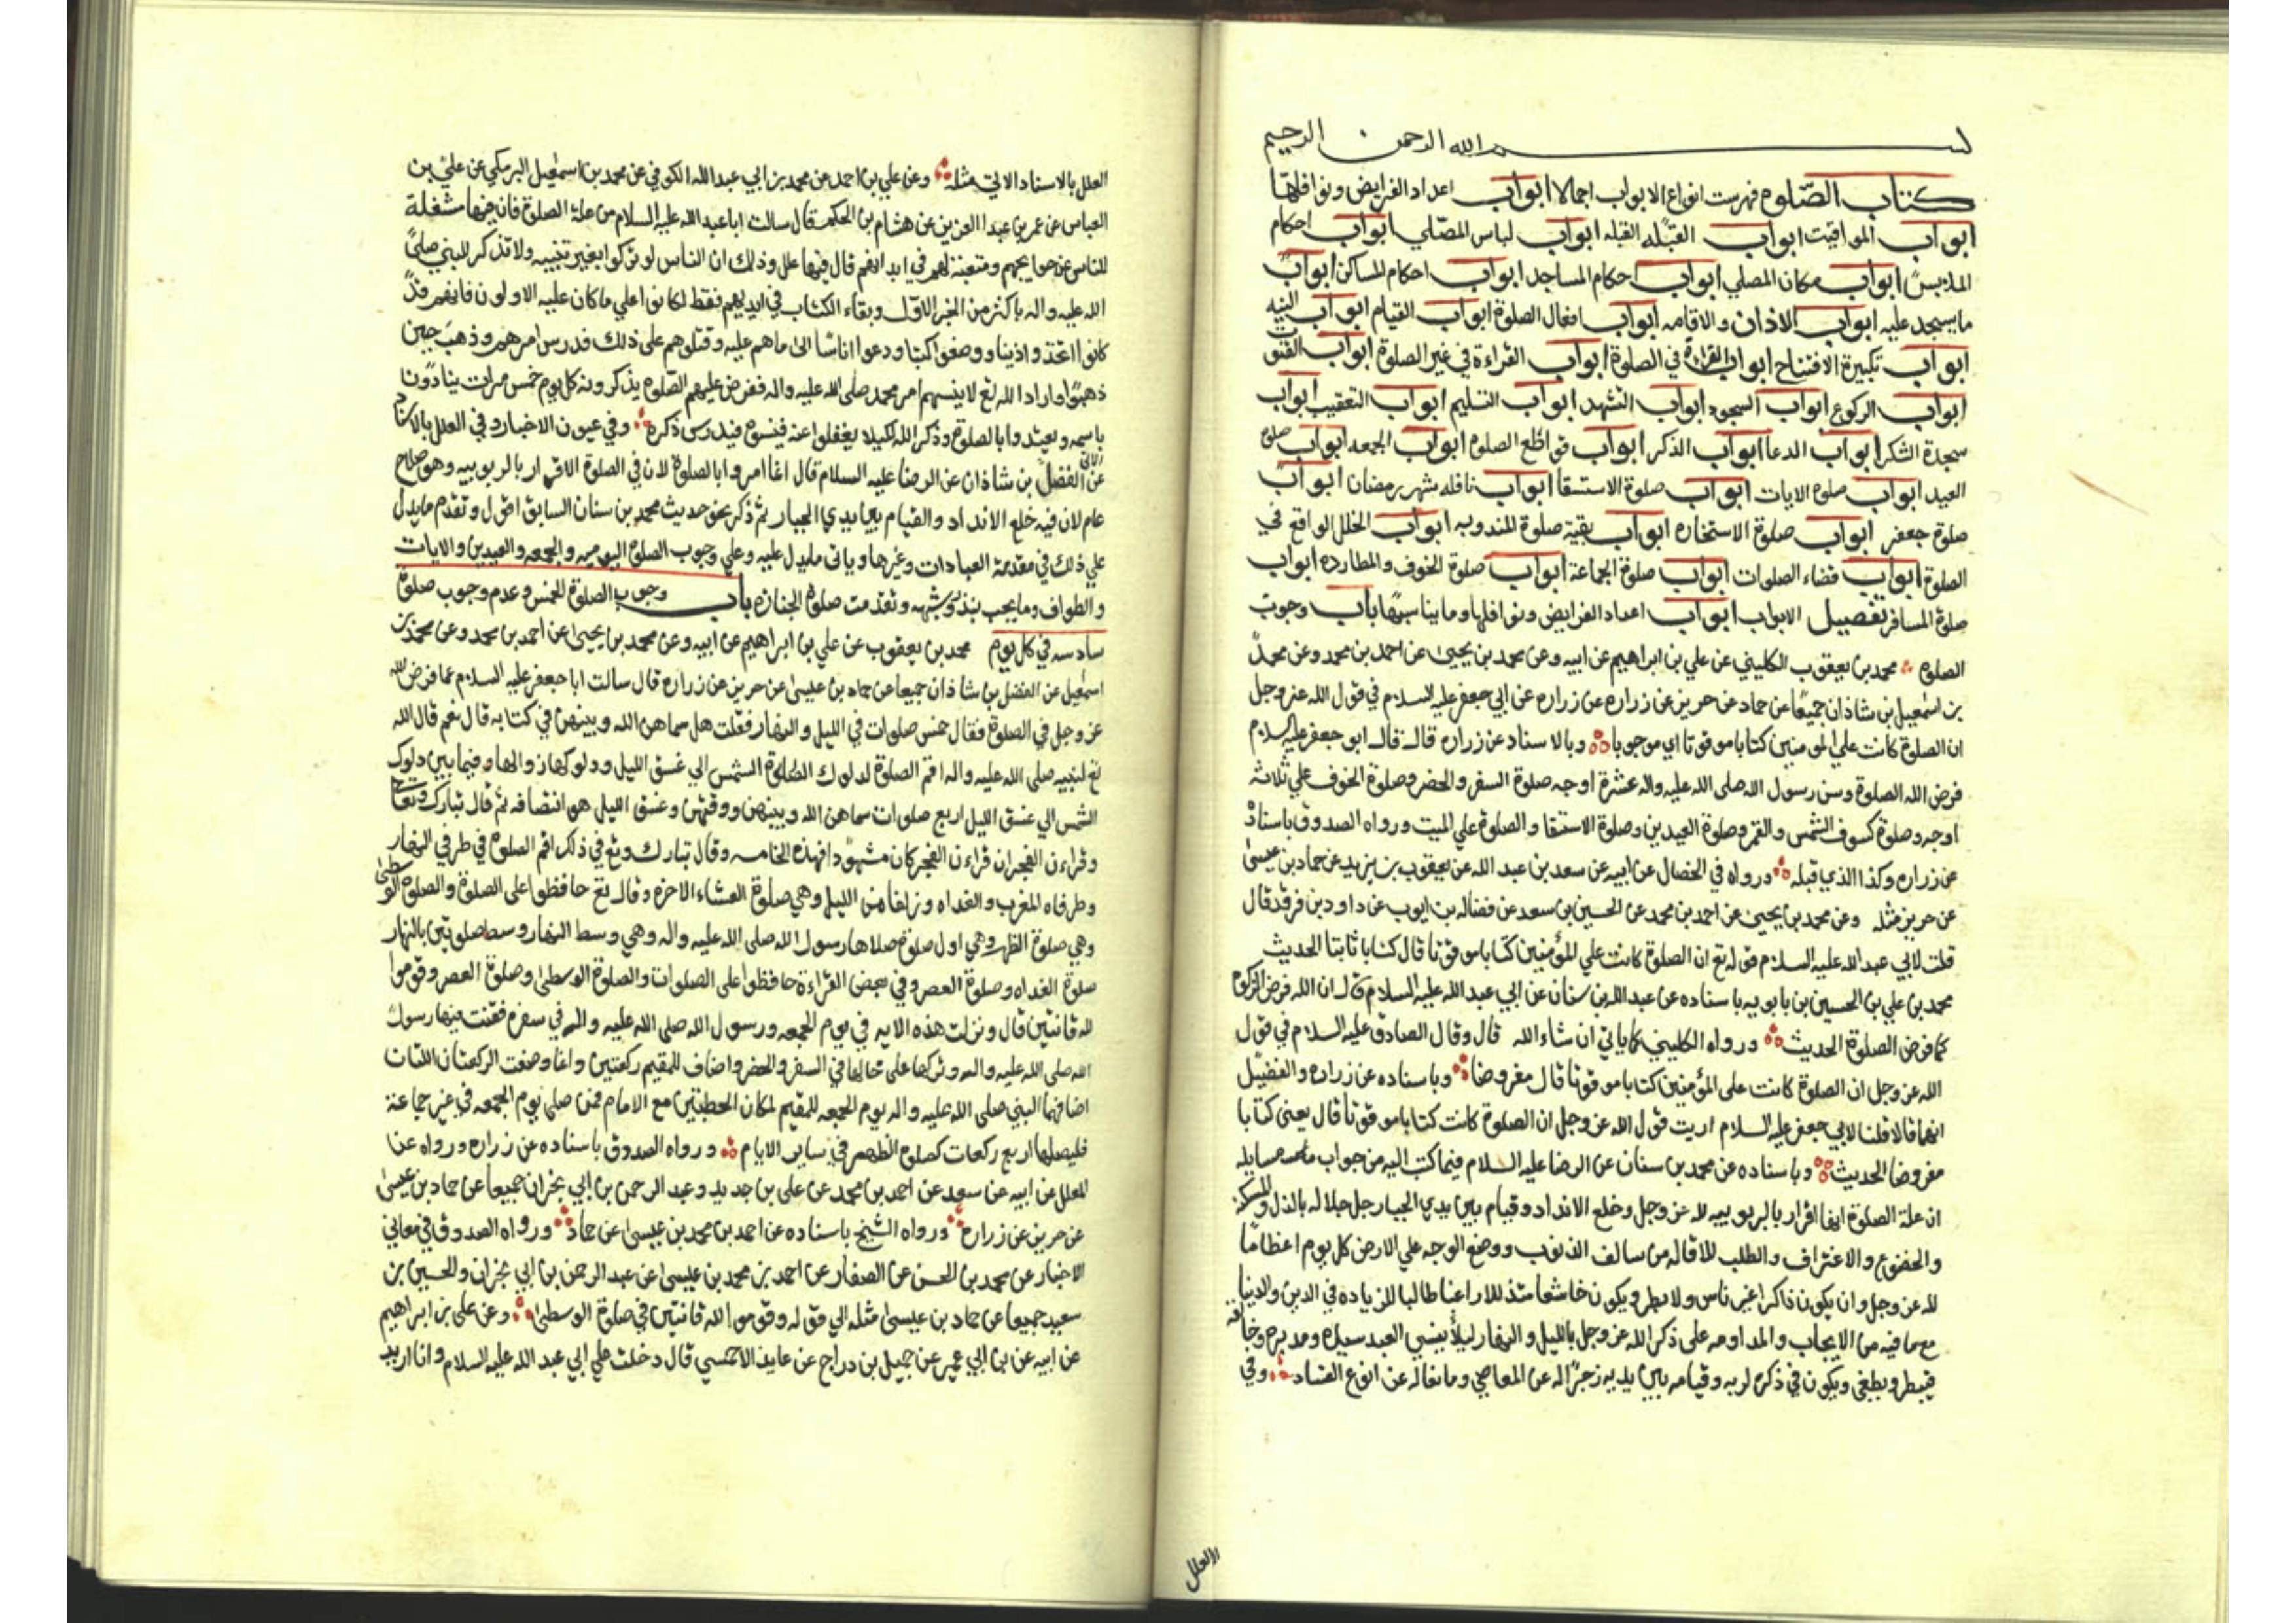 بسم الله الرحمن الرحيم
كتاب الصلوة فهرست انواع الابواب اجمالا ابواب اعداد الفرايض ونوافلها
ابواب المواقيت ابواب القبله ابواب لباس المصلي ابواب احكام
الملابس ابواب مكان المصلي ابواب احكام المساجد ابواب احكام المساكن ابواب
ما يسجد عليه ابواب الاذان والاقامه ابواب افعال الصلوة ابواب القيام ابواب النيه
ابواب تكبيرة الافتتاح ابواب القراءة في الصلوة ابواب القراءة في غير الصلوة ابواب القنوت
ابواب الركوع ابواب السجود ابواب التشهد ابواب التسليم ابواب التعقيب ابواب
سجدة الشكر ابواب الدعا ابواب الذكر ابواب قواطع الصلوة ابواب الجمعه ابواب صلوة
العيد ابواب صلوة الايات ابواب صلوة الاستسقا ابواب نافله شهر رمضان ابواب
صلوة جعفر ابواب صلوة الاستخاره ابواب بقية صلوة المندوبه ابواب الخلل الواقع في
الصلوة ابواب قضاء الصلوات ابواب صلوة الجماعة ابواب صلوة الخوف والمطارده ابواب
صلوة المسافر تفصيل الابواب ابواب اعداد الفرايض ونوافلها وما يناسبها باب وجوب
الصلوة محمد بن يعقوب الكليني عن علي بن ابراهيم عن ابيه وعن محمد بن يحيى عن احمد بن محمد وعن محمد
بن اسمعيل بن شاذان جميعا عن حماد عن حريز عن زراره عن زراره عن ابي جعفر عليه السلام في قول الله عز وجل
ان الصلوة كانت على المومنين كتابا موقوتا اي موجوبا وبالاسناد عن زراره قال قال ابو جعفر عليه السلام
فرض الله الصلوة وسن رسول الله صلى الله عليه واله عشرة اوجه صلوة السفر والحضر وصلوة الخوف علي ثلاثه
اوجه وصلوة كسوف الشمس والقمر وصلوة العيدين وصلوة الاستسقا والصلوة علي الميت ورواه الصدوق باسناده
عن زراره وكذا الذي قبله ورواه في الخصال عن ابيه عن سعد بن عبد الله عن يعقوب بن يزيد عن حماد بن عيسى
عن حريز مثله وعن محمد بن يحيى عن احمد بن محمد عن الحسين بن سعد عن فضاله بن ايوب عن داود بن فرقد قال
قلت لابي عبد الله عليه السلام قوله تع ان الصلوة كانت علي المؤمنين كتابا موقوتا قال كتابا ثابتا الحديث
محمد بن علي بن الحسين بن بابويه باسناده عن عبد الله بن سنان عن ابي عبد الله عليه السلام قال ان الله فرض الزكوة
كما فرض الصلوة الحديث ورواه الكليني كما ياتي ان شاء الله قال وقال الصادق عليه السلام في قول
الله عز وجل ان الصلوة كانت على المؤمنين كتابا موقوتا قال مفروضا وباسناده عن زراره والفضيل
انهما قالا قلنا لابي جعفر عليه السلام اريت قول الله عز وجل ان الصلوة كانت كتابا موقوتا قال يعنى كتابا
مفروضا الحديث وباسناده عن محمد بن سنان عن الرضا عليه السلام فيما كتب اليه من جواب مسايله
ان علة الصلوة انها اقرار بالربوبيه لله عز وجل وخلع الانداد وقيام بين يدي الجبار جل جلاله بالذل والمسكنه
والخضوع والاعتراف والطلب للاقاله من سالف الذنوب ووضع الوجه علي الارض كل يوم اعظاما
لله عز وجل وان يكون ذاكرا غير ناس ولا بطر ويكون خاشعا متذللا راغبا طالبا للزياده في الدين والدنيا
مع ما فيه من الايجاب والمداومه على ذكر الله عز وجل بالليل والنهار ليلا ينسي العبد سيده ومدبره وخالقه
فيبطر ويطغي ويكون في ذكره لربه وقيامه بين يديه زجرا له عن المعاصي ومانعا له عن انوع الفساد وفي
العلل
العلل بالاسناد الاتي مثله وعن علي بن احمد عن محمد بن ابي عبد الله الكوفي عن محمد بن اسمعيل البرمكي عن علي بن
العباس عن عمر بن عبد العزيز عن هشام بن الحكم قال سالت ابا عبد الله عليه السلام من علة الصلوة فان فيها مشغلة
للناس عن حوايجهم ومتعبة لهم في ابدانهم قال فيها علل وذلك ان الناس لو تركوا بغير تنبيه ولا تذكر للنبي صلى
الله عليه واله باكثر من الخبر الاول وبقاء الكتاب في ايديهم فقط لكانوا علي ما كان عليه الاولون فانهم قد
كانوا اتخذوا دينا ووضعوا كتبا ودعوا اناسا الى ماهم عليه وقتلوهم على ذلك فدرس امرهم وذهب حين
ذهبوا واراد الله تع لا ينسيهم امر محمد صلى الله عليه واله ففرض عليهم الصلوة يذكرونه كل يوم خمس مرات ينادون
باسمه وتعبدوا بالصلوة وذكر الله لكيلا يغفلوا عنه فينسوه فيدرس ذكره وفي عيون الاخبار وفي العلل بالاسناد
الاتي عن الفضل بن شاذان عن الرضا عليه السلام قال انما امروا بالصلوة لان في الصلوة الاقرار بالربوبيه وهو صلاح
عام لان فيه خلع الانداد والقيام بين يدي الجبار ثم ذكر نحو حديث محمد بن سنان السابق اقول وتقدم ما يدل
علي ذلك في مقدمة العبادات وغيرها وياتى ما يدل عليه وعلي وجوب الصلوة اليوميه والجمعه والعيدين والايات
والطواف وما يجب بنذر وشبهه وتقدمت صلوة الجنازه باب وجوب الصلوة الخمس وعدم وجوب صلوة
سادسه في كل يوم محمد بن يعقوب عن علي بن ابراهيم عن ابيه وعن محمد بن يحيى عن احمد بن محمد وعن محمد بن
اسمعيل عن الفضل بن شاذان جميعا عن حماد بن عيسى عن حريز عن زراره قال سالت ابا جعفر عليه السلام عما فرض الله
عز وجل في الصلوة فقال خمس صلوات في الليل والنهار فقلت هل سماهن الله وبينهن في كتابه قال نعم قال الله
تع لنبيه صلى الله عليه واله اقم الصلوة لدلوك الشمس الي غسق الليل ودلوكها زوالها وفيما بين دلوك
الشمس الي غسق الليل اربع صلوات سماهن الله وبينهن ووقتهن وغسق الليل هو انتصافه ثم قال تبارك وتعالى
وقراءن الفجر ان قراءن الفجر كان مشهودا فهذه الخامسه وقال تبارك وتع في ذلك اقم الصلوة في طرفي النهار
وطرفاه المغرب والغداه وزلفا من الليل وهي صلوة العشاء الاخره وقال تع حافظوا على الصلوة والصلوة الوسطى
وهي صلوة الظهر وهي اول صلوة صلاها رسول الله صلى الله عليه واله وهي وسط النهار ووسط صلوتين بالنهار
صلوة الغداه وصلوة العصر وفي بعض القراءة حافظوا على الصلوات والصلوة الوسطى وصلوة العصر وقوموا
لله قانتين قال ونزلت هذه الايه في يوم الجمعه ورسول الله صلى الله عليه واله في سفره فقنت فيها رسول
الله صلى الله عليه واله وتركها على حالها في السفر والحضر واضاف للمقيم ركعتين وانما وضعت الركعتان اللتان
اضافهما النبي صلى الله عليه واله يوم الجمعه للمقيم لمكان الخطبتين مع الامام فمن صلى يوم الجمعه في غير جماعة
فليصلها اربع ركعات كصلوة الظهر في ساير الايام ورواه الصدوق باسناده عن زراره ورواه عن
العلل عن ابيه عن سعد عن احمد بن محمد عن علي بن حديد وعبد الرحمن بن ابي نجران جميعا عن حماد بن عيسى
عن حريز عن زراره ورواه الشيخ باسناده عن احمد بن محمد بن عيسى عن حماد ورواه الصدوق في معاني
الاخبار عن محمد بن الحسن عن الصفار عن احمد بن محمد بن عيسى عن عبد الرحمن بن ابي نجران والحسين بن
سعيد جميعا عن حماد بن عيسى مثله الي قوله وقوموا لله قانتين في صلوة الوسطى وعن علي بن ابراهيم
عن ابيه عن بن ابي عمير عن جميل بن دراج عن عايذ الاحمسي قال دخلت علي ابي عبد الله عليه السلام وانا اريد